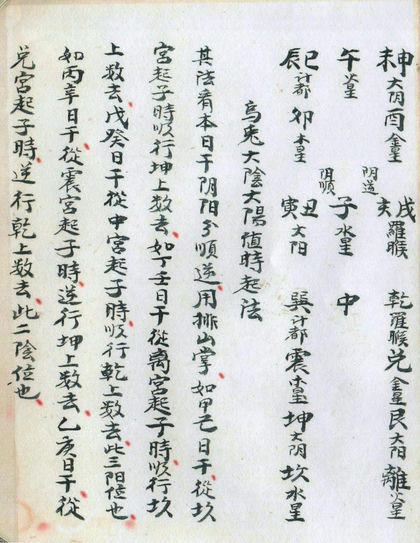 未申大阴酉金星 戌亥羅睺 乾羅睺兑金星艮大阳離火星
午火星 阴逆 阳順 子水星 中
辰巳計都卯木星 寅丑大阳 巽計都震木星坤大阴坎水星
烏兎大陰大陽值時起法
其法看本日干阴阳分順逆用排山掌如甲己日干從坎
宮起子時順行坤上数去如丁壬日干從離宮起子時順行坎
上数去戊癸日干從中宮起子時順行乾上数去此三阳位也
如丙辛日干從震宮起子時逆行坤上数去乙庚日干從
兑宮起子時逆行乾上数去此二陰位也